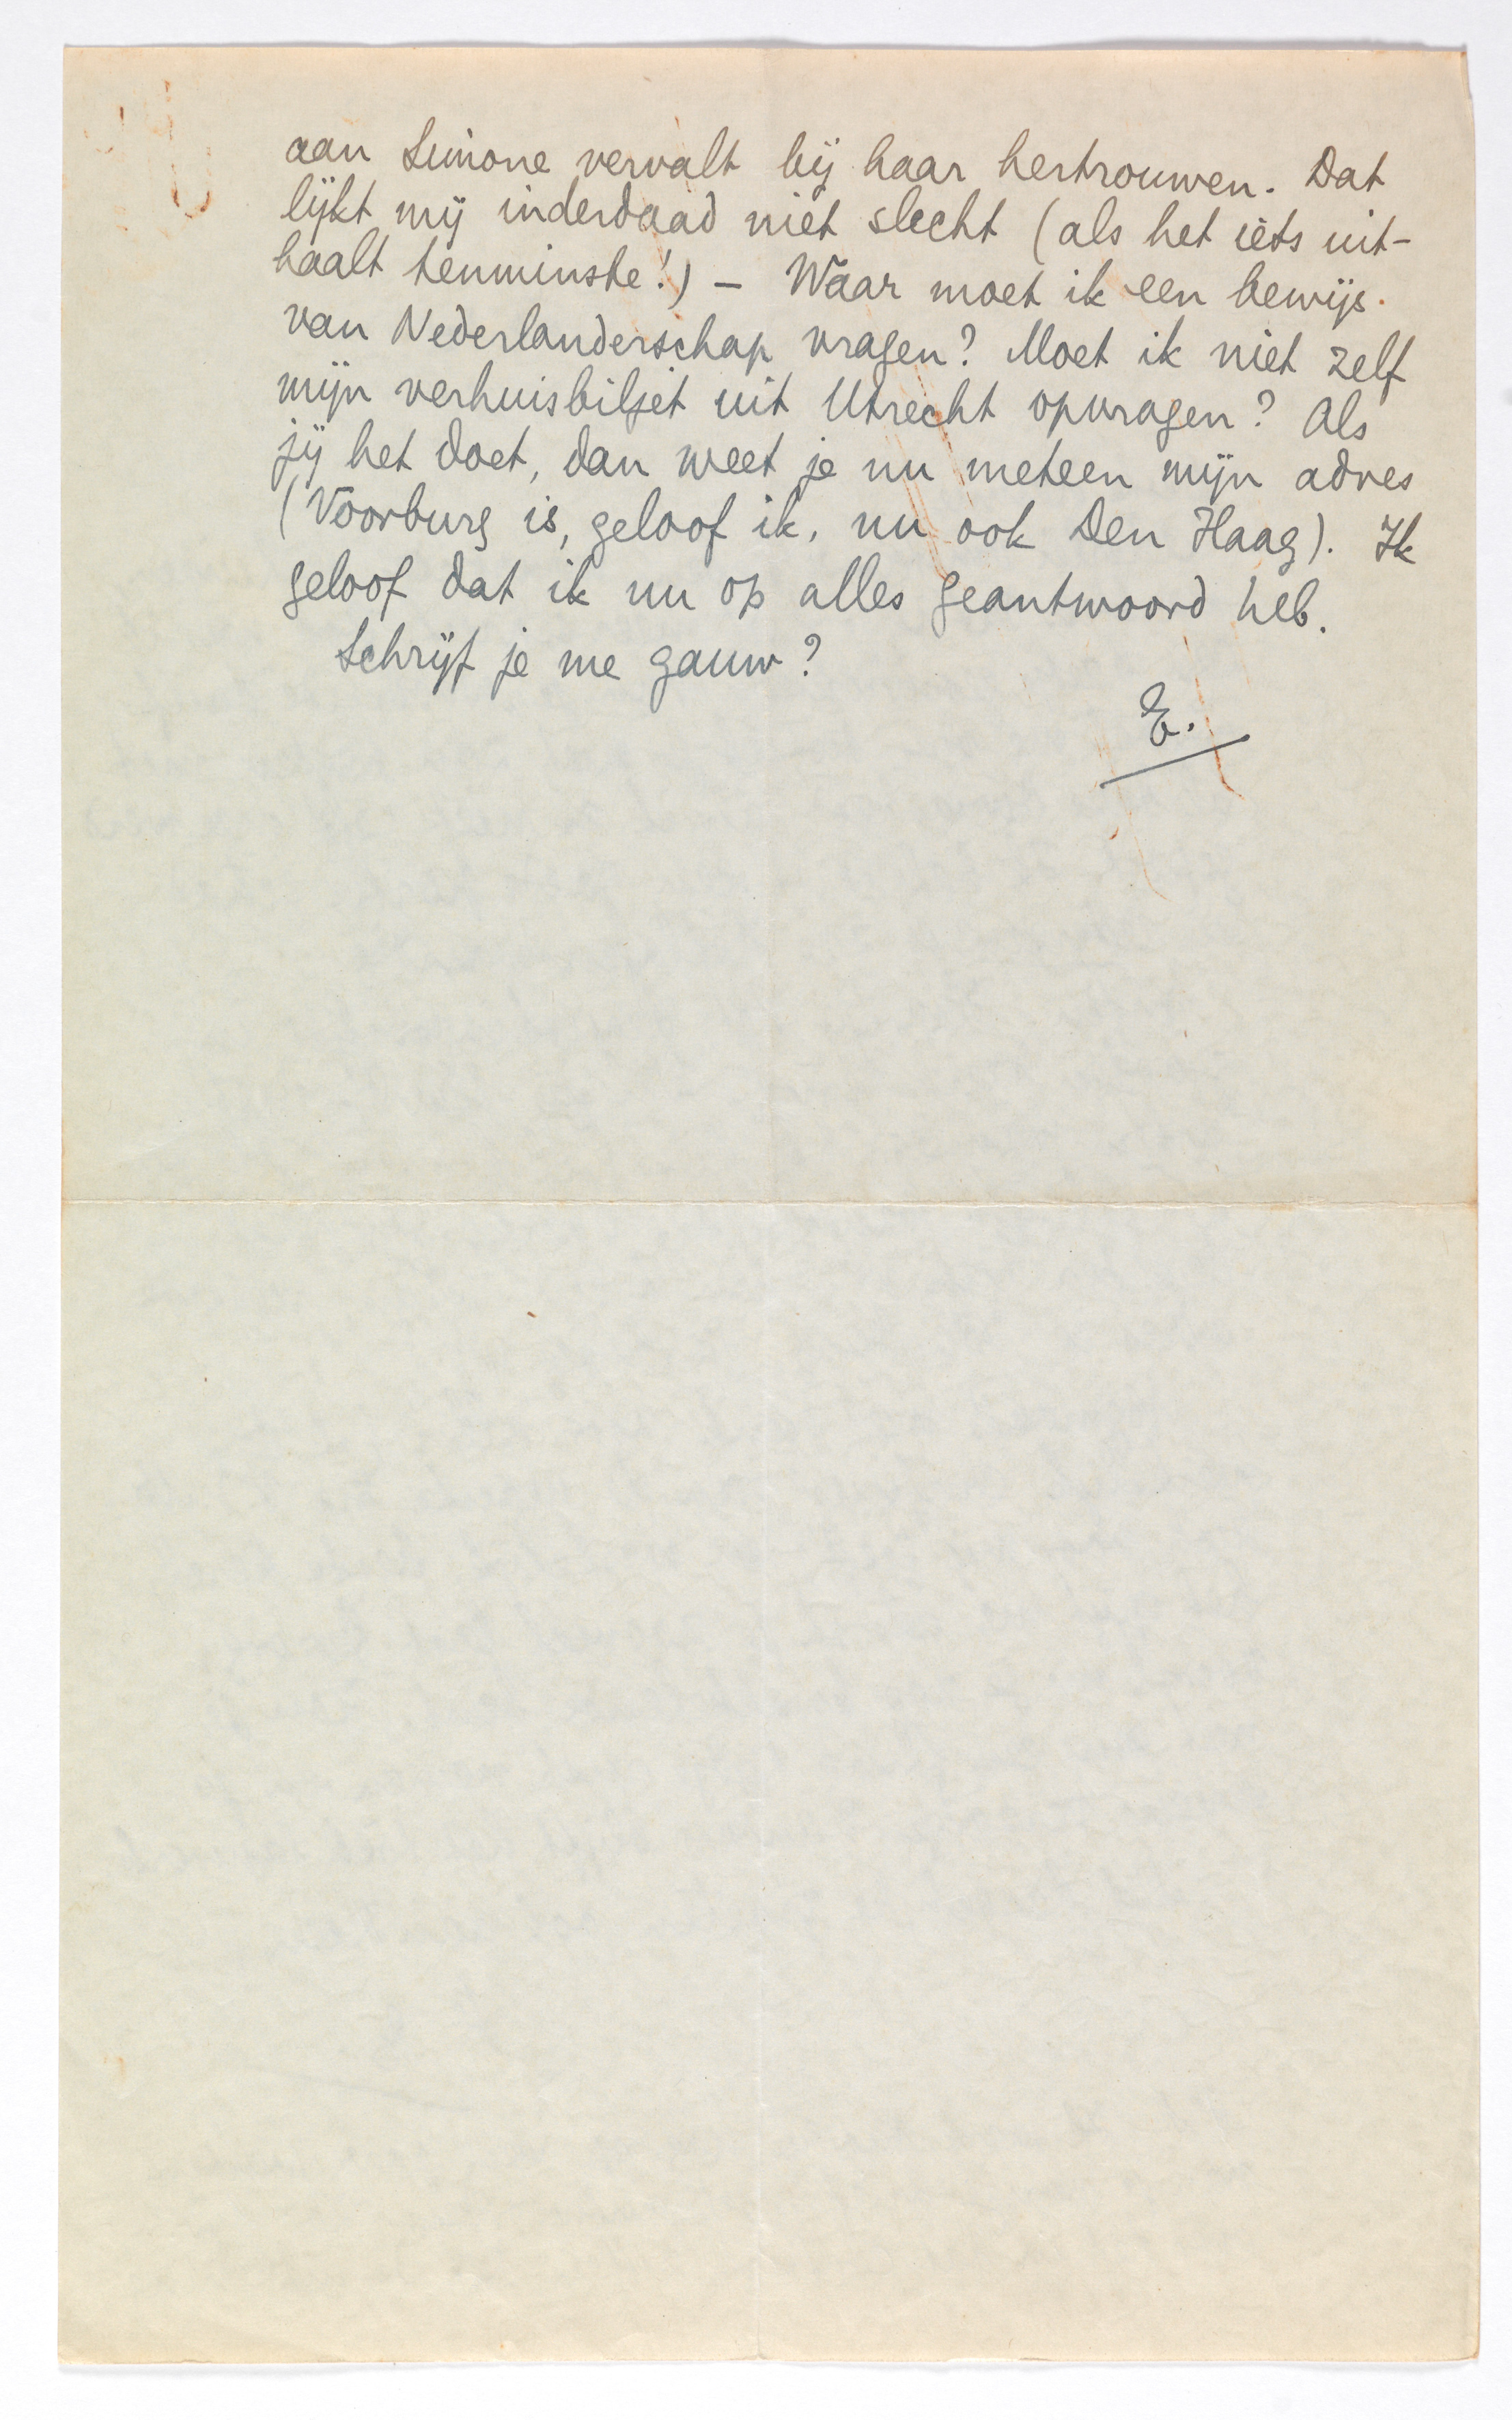 aan Simone vervalt bij haar hertrouwen. Dat
lijkt mij inderdaad niet slecht (als het iets uit-
haalt tenminste!) – Waar moet ik een bewijs
van Nederlanderschap vragen? Moet ik niet zelf
mijn verhuisbiljet uit Utrecht opvragen? Als
jij het doet, dan weet je nu meteen mijn adres
(Voorburg is, geloof ik, nu ook Den Haag). Ik
geloof dat ik nu op alles geantwoord heb.
Schrijf je me gauw?
E.